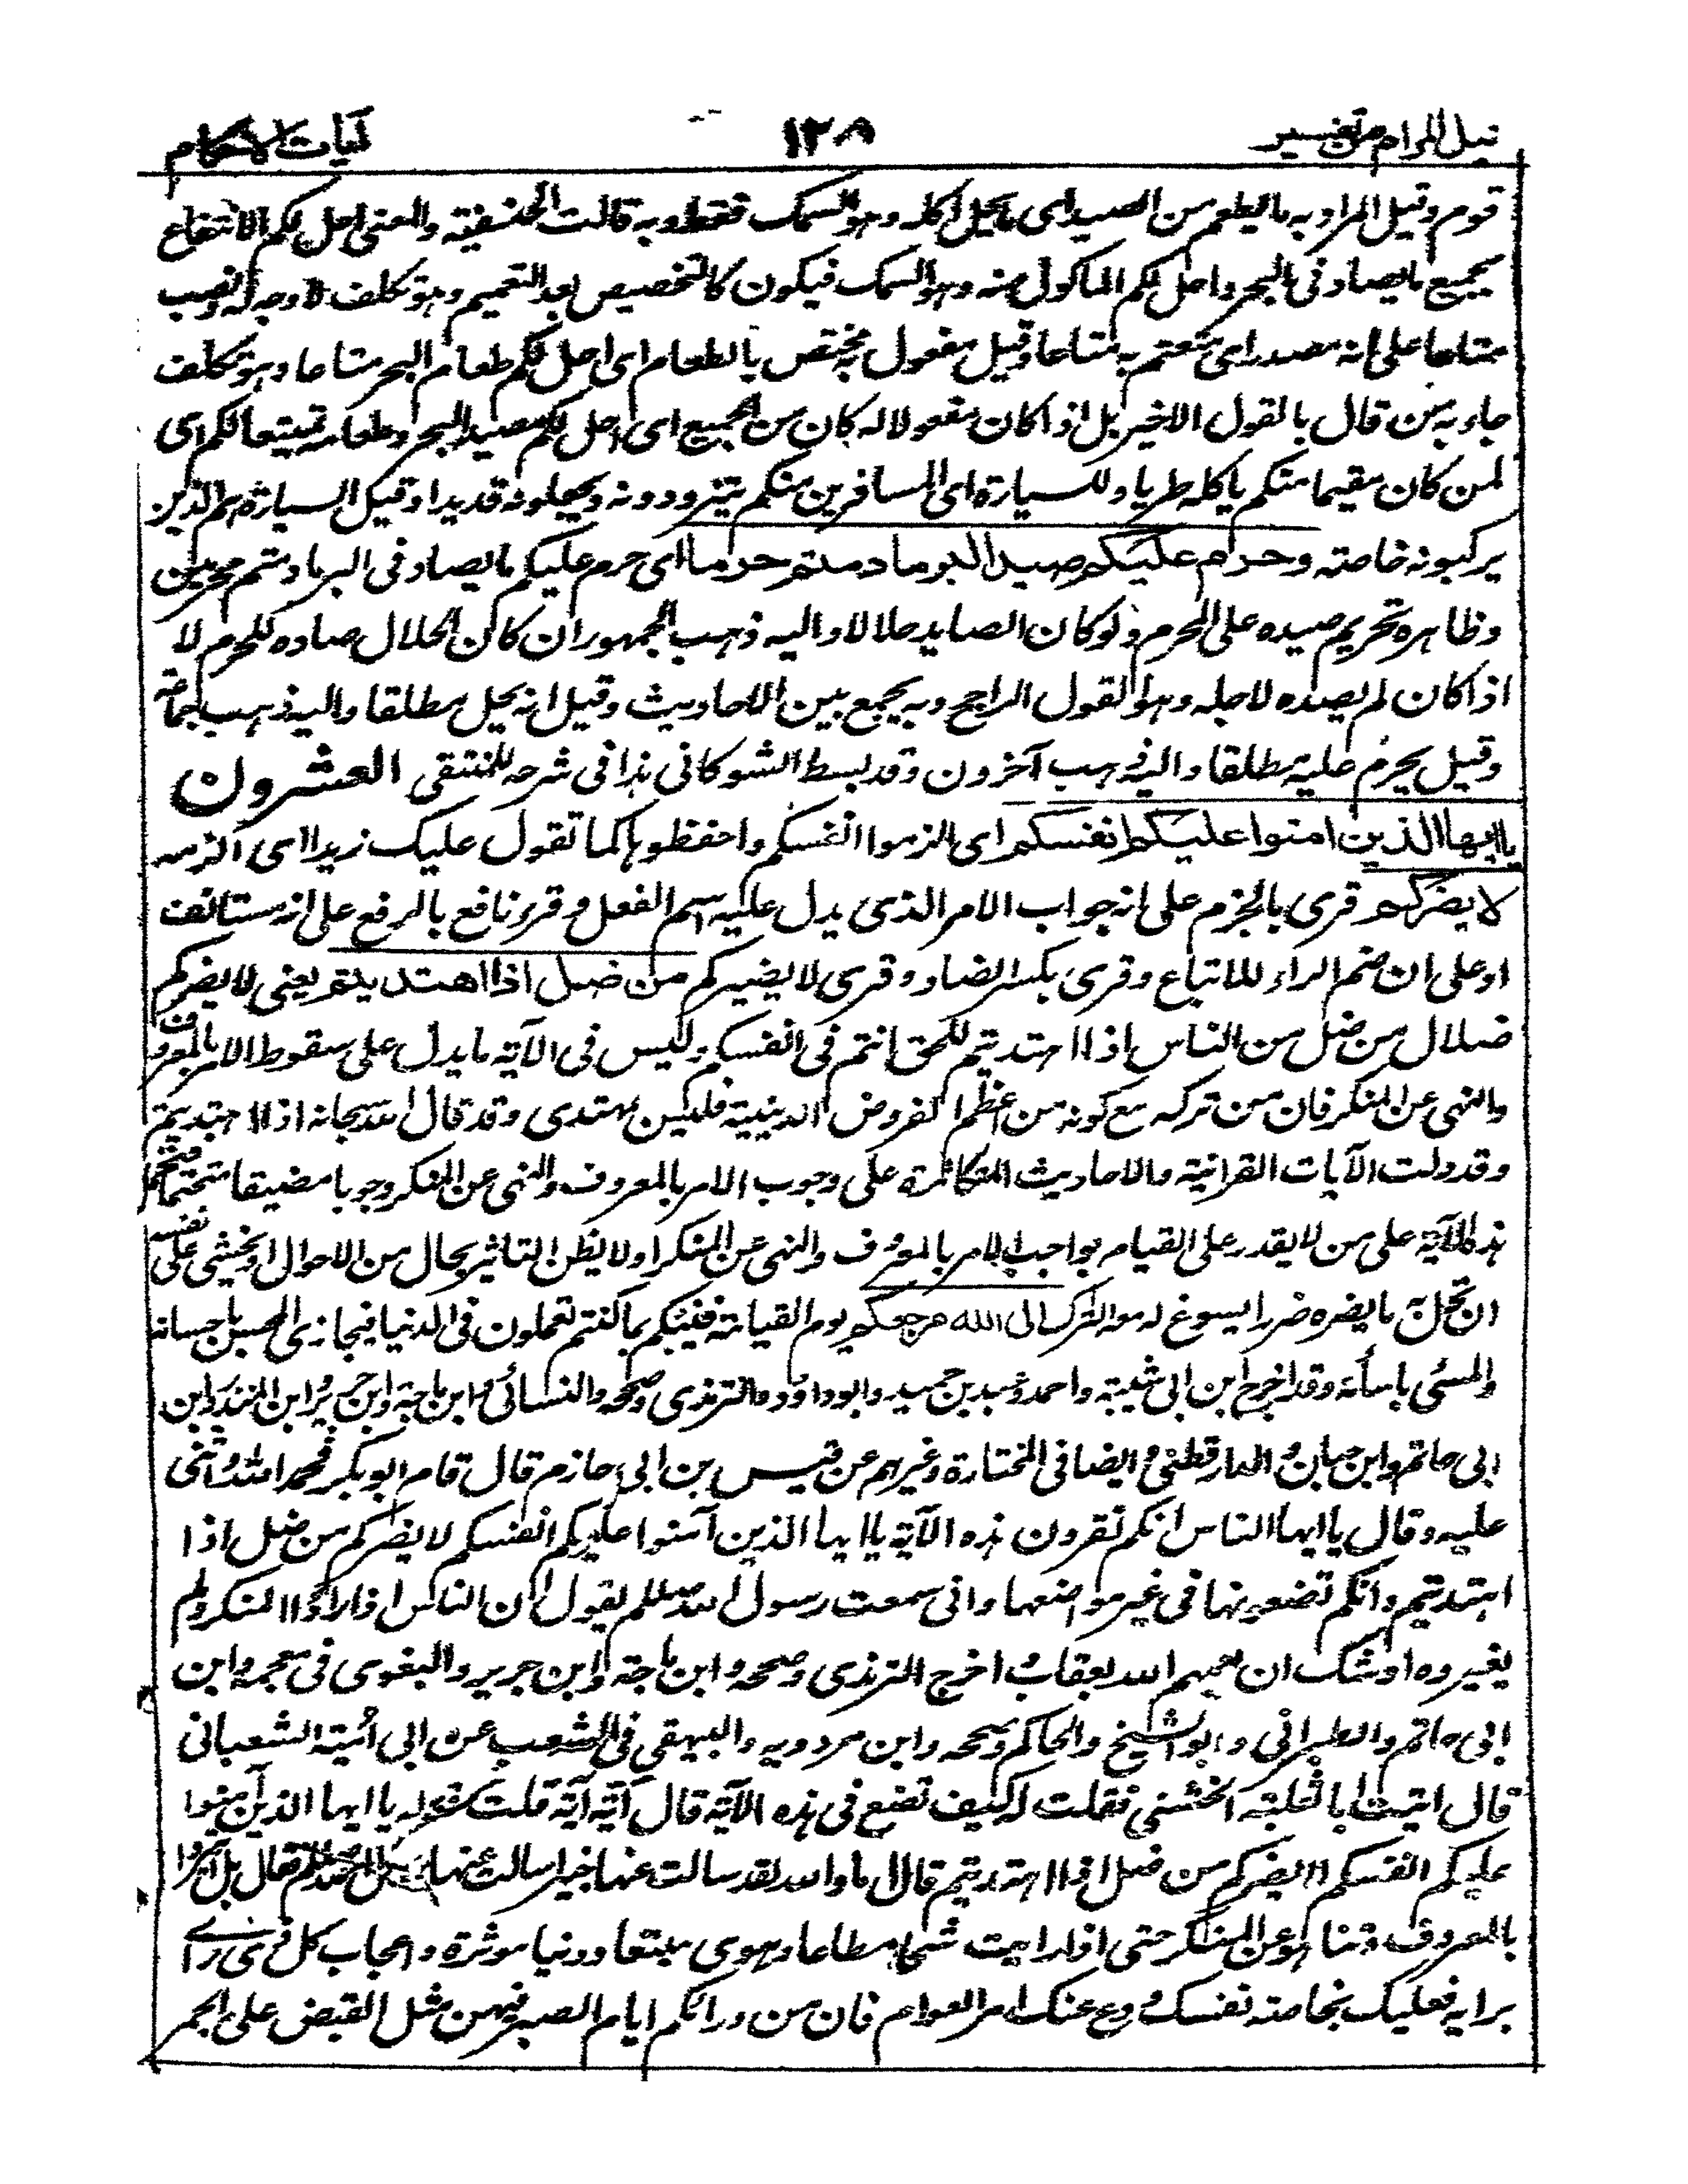 نيل المرام من تفسير
١٢٨
آيات الاحكام
قوم وقيل المراد به ما يطعم من الصيد اى ما يحل اكله وهو السمك فقط وبه قالت الحنفية والمعنى احل لكم الانتفاع
بجميع ما يصاد فى البحر واحل لكم الماكول منه وهو السمك فيكون كالتخصيص بعد التعميم وهو تكلف لا وجه له ونصب
متاعا على انه مصدر اى متعتم به متاعا وقيل مفعول له مختص بالطعام اى احل لكم طعام البحر متاعا وهو تكلف
جاء به من قال بالقول الاخير بل اذا كان مفعولا له كان من الجميع اى احل لكم صيد البحر وطعامه تمتيعا لكم اى
لمن كان مقيما منكم ياكله طريا وللسيارة اى المسافرين منكم يتزودونه ويجعلونه قديدا وقيل السيارة هم الذين
يركبونه خاصته وحرم عليكم صيد البر ما دمتم حرما اى حرم عليكم ما يصاد فى البر ما دمتم محرمين
وظاهره تحريم صيده على المحرم ولو كان الصايد حلالا واليه ذهب الجمهور ان كان الحلال صاده للمحرم لا
اذا كان لم يصده لاجله وهو القول الراجح وبه يجمع بين الاحاديث وقيل انه يحل مطلقا واليه ذهب جماعة
وقيل يحرم عليه مطلقا واليه ذهب آخرون وقد بسط الشوكانى هذا فى شرحه للمنتقى العشرون
ياايها الذين امنوا عليكم انفسكم اى الزموا انفسكم واحفظوها كما تقول عليك زيدا اى الزمه
لا يضركم قرى بالجزم على انه جواب الامر الذى يدل عليه اسم الفعل وقرء نافع بالرفع على انه مستانف
او على ان ضم الراء للاتباع وقرى بكسر الضاد وقرى لا يضيركم من ضل اذا اهتديتم يعنى لا يضركم
ضلال من ضل من الناس اذا اهتديتم للحق انتم فى انفسكم وليس فى الآية ما يدل على سقوط الامر بالمعروف
والنهى عن المنكر فان من تركه مع كونه من اعظم الفروض الدينية فليس بمهتدى وقد قال الله سبحانه اذا اهتديتم
وقد دلت الآيات القرانية والاحاديث المتكاثرة على وجوب الامر بالمعروف والنهى عن المنكر وجوبا مضيقا متحتما فتحمل
هذه الآية على من لا يقدر على القيام بواجب الامر بالمعروف والنهى عن المنكر او لا يظن التاثير بحال من الاحوال او يخشى على نفسه
ان يحل به ما يضره ضررا يسوغ له معه الترك الى الله مرجعكم يوم القيامة فينبئكم بما كنتم تعملون فى الدنيا فيجازى المحسن باحسانه
والمسئ باسأته وقد اخرج ابن ابى شيبة واحمد وعبد بن حميد وابو داود والترمذى وصححه والنسائى وابن ماجة وابن جرير وابن المنذر وابن
ابى حاتم وابن حبان والدارقطنى والضيا فى المختارة وغيرهم عن قيس بن ابى حازم قال قام ابو بكر فحمد الله واثنى
عليه وقال يا ايها الناس انكم تقرون هذه الآية يا ايها الذين آمنوا عليكم انفسكم لا يضركم من ضل اذا
اهتديتم وانكم تضعونها فى غير مواضعها وانى سمعت رسول الله صلعم يقول ان الناس اذا راوا المنكر ولم
يغيروه اوشك ان يعمهم الله بعقاب واخرج الترمذى وصححه وابن ماجة وابن جرير والبغوى فى معجمه وابن
ابى حاتم والطبرانى وابو الشيخ والحاكم وصححه وابن مردويه والبيهقى فى الشعب عن ابى امية الشعبانى
قال اتيت ابا ثعلبة الخشنى فقلت له كيف تصنع فى هذه الآية قال آية آية قلت قوله يا ايها الذين آمنوا
عليكم انفسكم لا يضركم من ضل اذا اهتديتم قال اما والله لقد سالت عنها خبيرا سالت عنها رسول الله صلعم قال بل ائتمروا
بالمعروف وتناهوا عن المنكر حتى اذا رايت شحا مطاعا وهوى متبعا ودنيا موثرة واعجاب كل ذى راى
برايه فعليك بخاصة نفسك ودع عنك امر العوام فان من ورائكم ايام الصبر فيهن مثل القبض على الجمر